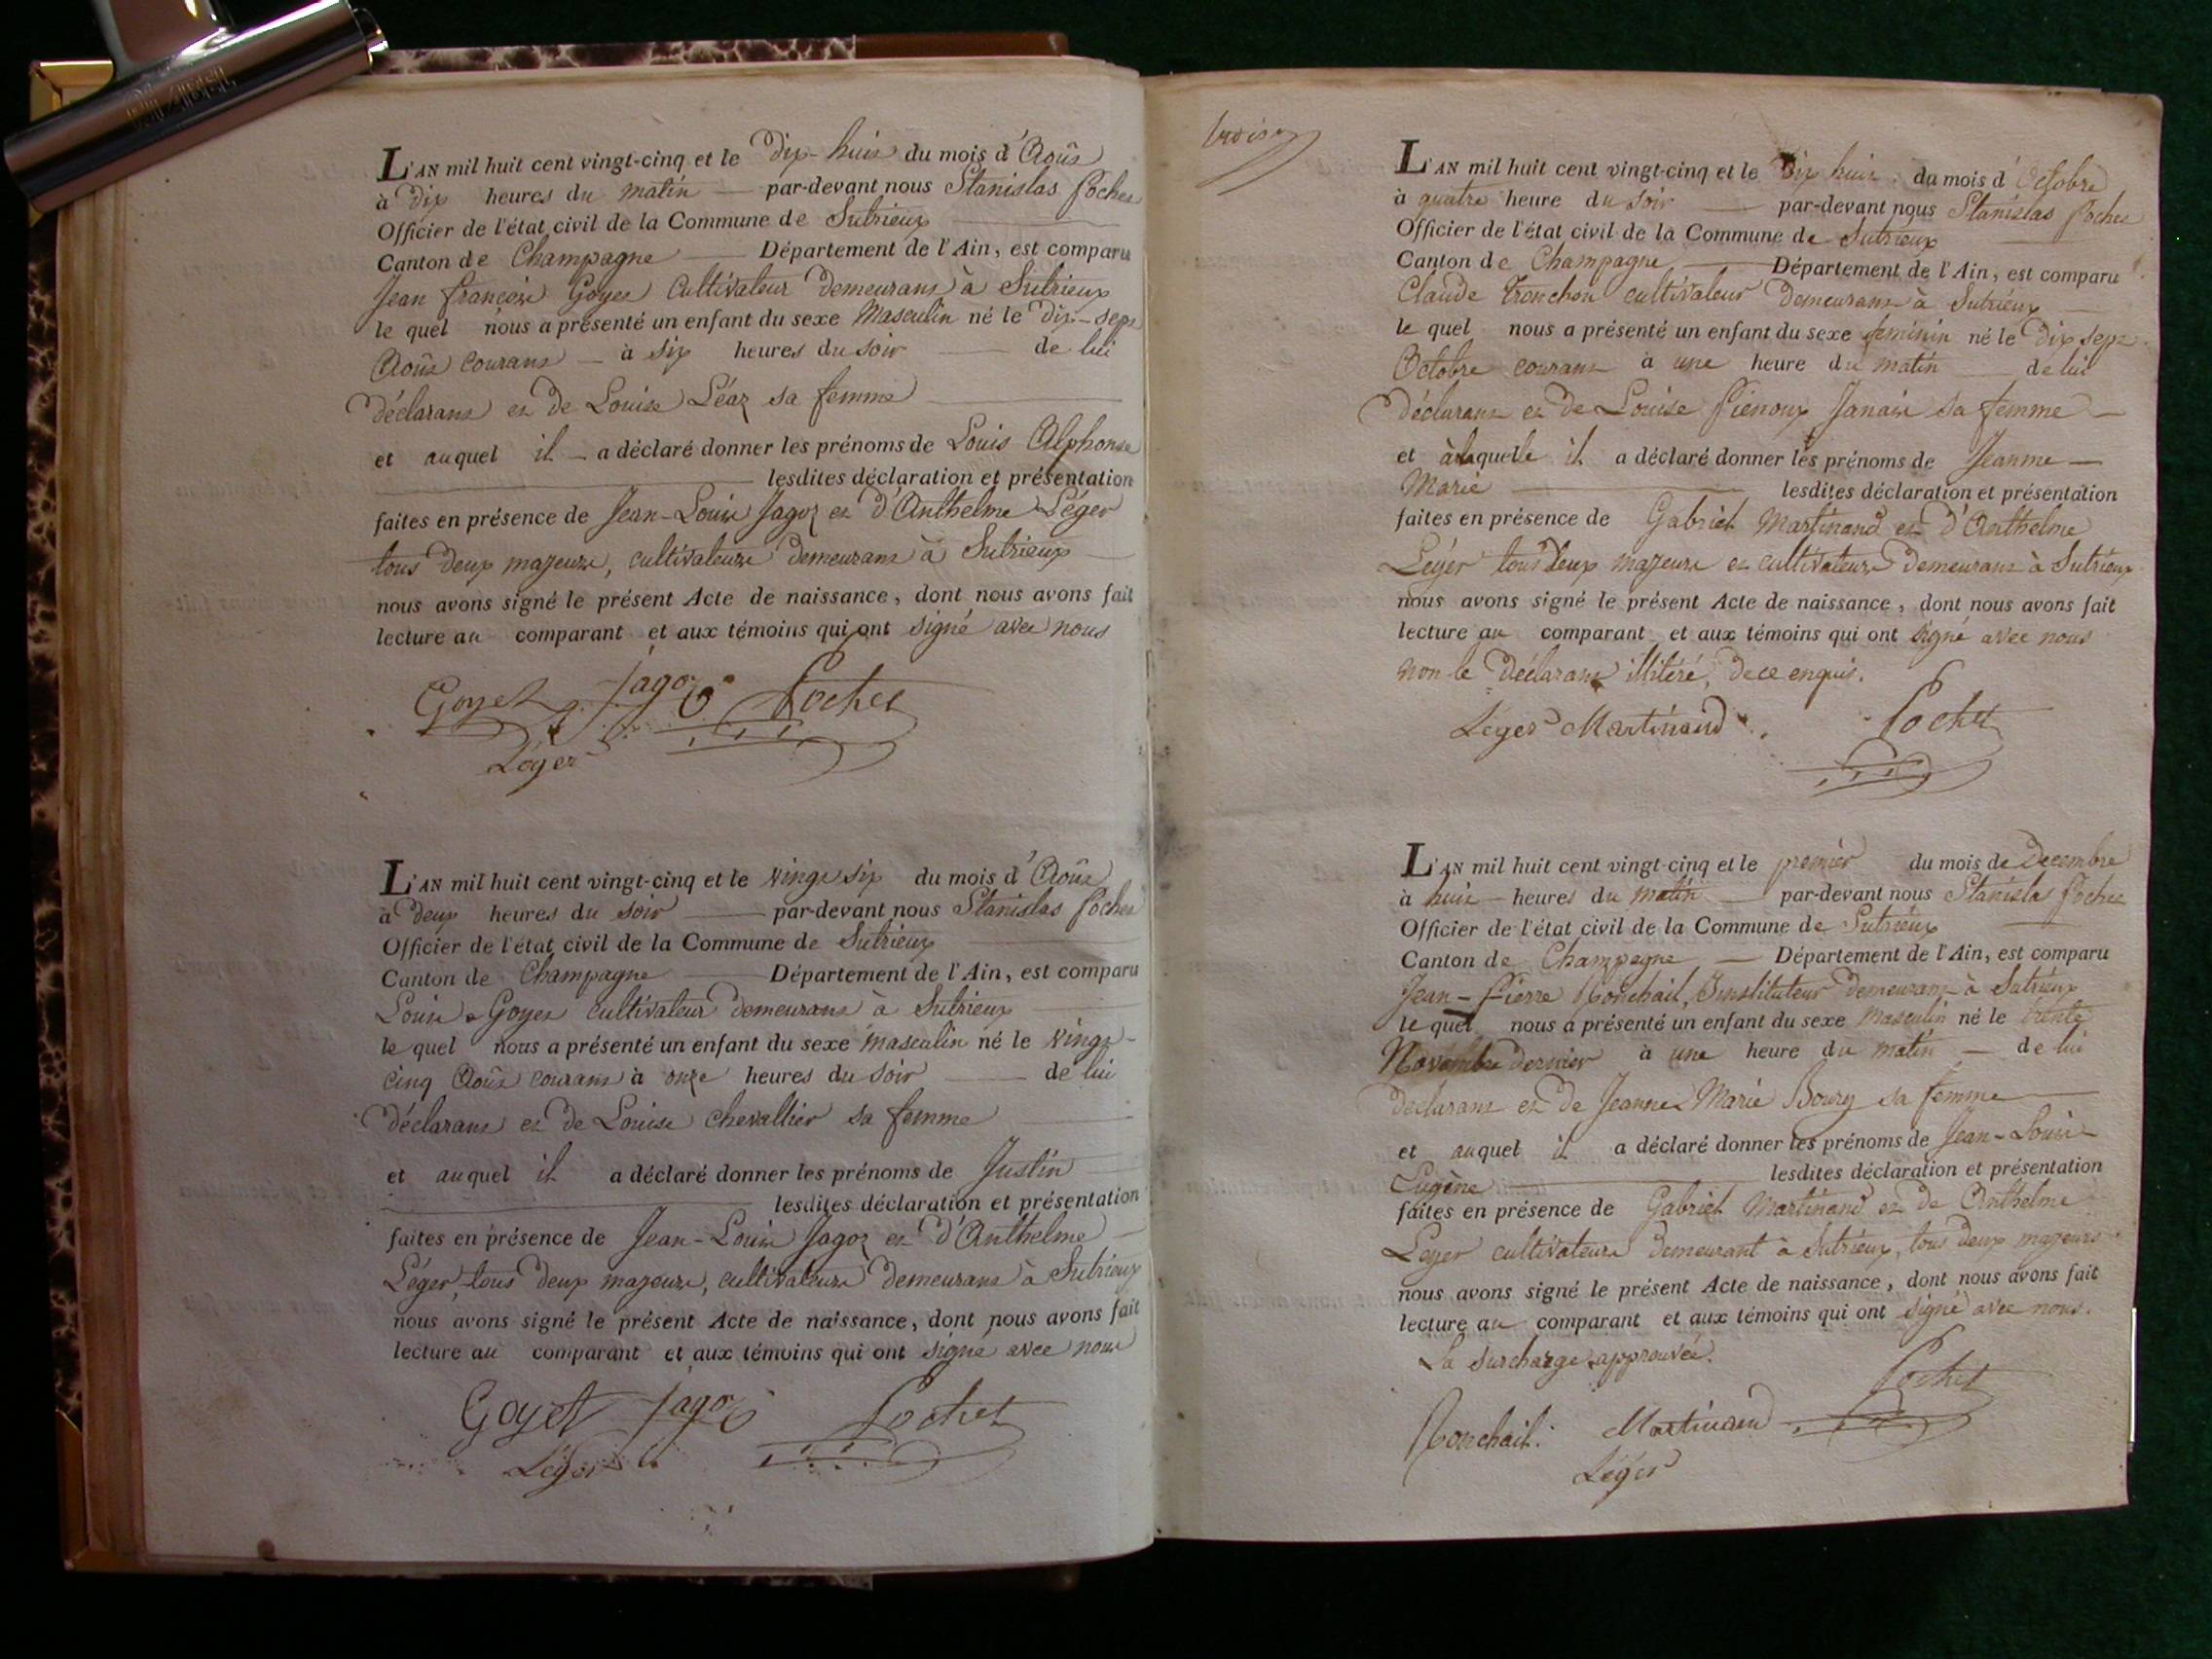 L'AN mil huit cent vingt-cinq et le Dix-huit du mois d'Août
à Dix heures du matin par-devant nous Stanislas Pochet
Officier de l'état civil de la Commune de Sutrieux
Canton de Champagne Département de l'Ain, est comparu
Jean françois Goyet Cultivateur Demeurant à Sutrieux
le quel nous a présenté un enfant du sexe Masculin né le Dix-sept
Août courant à six heures du soir de lui
Déclarant et de Louise Léaz sa femme
et auquel il a déclaré donner les prénoms de Louis Alphonse
lesdites déclaration et présentation
faites en présence de Jean-Louis Jagoz et d'Anthelme Léger
tous Deux majeurs, cultivateurs Demeurant à Sutrieux
nous avons signé le présent Acte de naissance, dont nous avons fait
lecture au comparant et aux témoins qui ont signé avec nous
Goyet Jagoz Pochet
Léger
L'AN mil huit cent vingt-cinq et le vingt six du mois d'Août
à Deux heures du soir par-devant nous Stanislas Pochet
Officier de l'état civil de la Commune de Sutrieux
Canton de Champagne Département de l'Ain, est comparu
Louis Goyet cultivateur Demeurant à Sutrieux
le quel nous a présenté un enfant du sexe masculin né le vingt-
cinq Août courant à onze heures du soir de lui
Déclarant et de Louise chevallier sa femme
et auquel il a déclaré donner les prénoms de Justin
lesdites déclaration et présentation
faites en présence de Jean-Louis Jagoz et d'Anthelme
Léger, tous Deux majeurs, cultivateurs Demeurant à Sutrieux
nous avons signé le présent Acte de naissance, dont nous avons fait
lecture au comparant et aux témoins qui ont signé avec nous
Goyet Jagoz Pochet
Léger
trois
L'AN mil huit cent vingt-cinq et le Dix huit du mois d'Octobre
à quatre heure du soir par-devant nous Stanislas Pochet
Officier de l'état civil de la Commune de Sutrieux
Canton de Champagne Département de l'Ain, est comparu
Claude Tronchon cultivateur Demeurant à Sutrieux
le quel nous a présenté un enfant du sexe feminin né le Dix sept
Octobre courant à une heure du matin de lui
Déclarant et de Louise Janais sa femme
et à laquelle il a déclaré donner les prénoms de Jeanne
Marie lesdites déclaration et présentation
faites en présence de Gabriel Martinand et d'Anthelme
Léger tous Deux majeurs et cultivateurs Demeurant à Sutrieux
nous avons signé le présent Acte de naissance, dont nous avons fait
lecture au comparant et aux témoins qui ont signé avec nous
non le Déclarant illitéré, de ce enquis.
Léger Martinand Pochet
L'AN mil huit cent vingt-cinq et le premier du mois de Decembre
à huit heures du matin par-devant nous Stanislas Pochet
Officier de l'état civil de la Commune de Sutrieux
Canton de Champagne Département de l'Ain, est comparu
Jean-Pierre Monchail, Instituteur Demeurant à Sutrieux
le quel nous a présenté un enfant du sexe Masculin né le trente
Novembre Dernier à une heure du matin de lui
Declarant et de Jeanne Marie Boury sa femme
et auquel il a déclaré donner les prénoms de Jean-Louis-
Eugène lesdites déclaration et présentation
faites en présence de Gabriel Martinand et de Anthelme
Leger cultivateurs Demeurant à Sutrieux, tous Deux majeurs
nous avons signé le présent Acte de naissance, dont nous avons fait
lecture au comparant et aux témoins qui ont signé avec nous.
la surcharge approuvée.
Monchail. Martinand Pochet
Léger